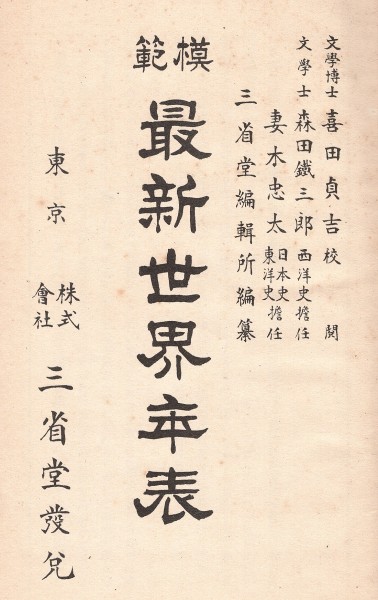 文學博士 喜田貞吉 校閱
文學士 森田鐵三郎 西洋史擔任
妻木忠太 日本史東洋史擔任
三省堂編輯所編纂
模範
最新世界年表
東京 株式會社 三省堂發兌